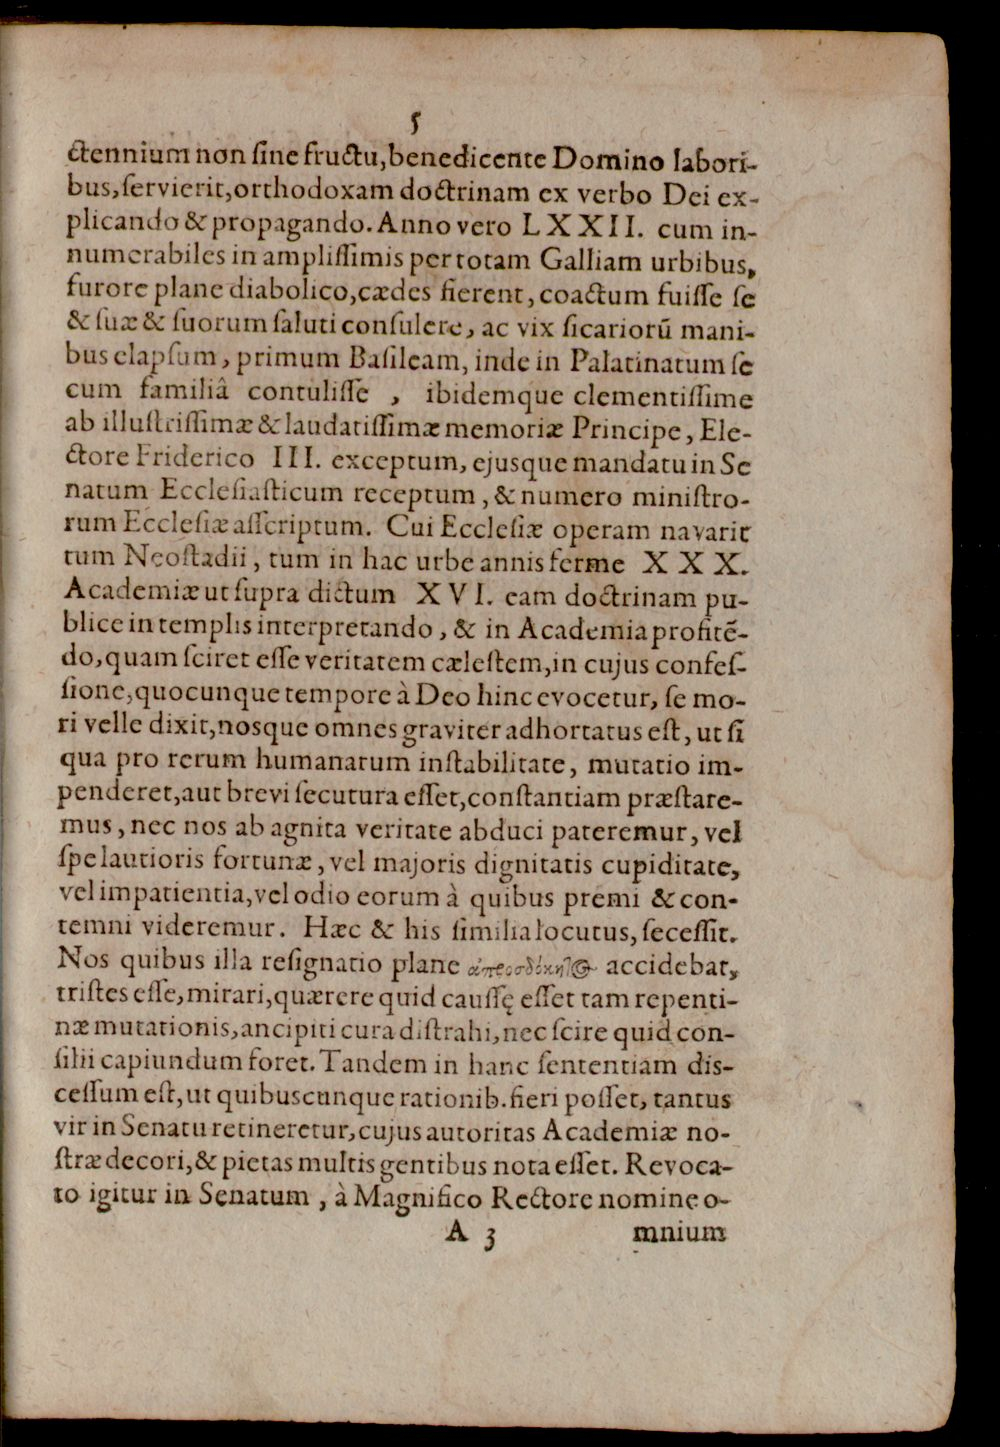 5
ctennium non ſine fructu, benedicente Domino labori-
bus, ſervierit, orthodoxam doctrinam ex verbo Dei ex-
plicando & propagando. Anno vero LXXII. cum in-
numerabiles in ampliſſimis per totam Galliam urbibus,
furore plane diabolico, cædes fierent, coactum fuiſſe ſe
& ſuæ & ſuorum ſaluti conſulere, ac vix ſicariorū mani-
bus elapſum, primum Baſileam, inde in Palatinatum ſe
cum familiâ contuliſſe, ibidemque clementiſſime
ab illuſtriſſimæ & laudatiſſimæ memoriæ Principe, Ele-
ctore Friderico III. exceptum, ejusque mandatu in Se
natum Eccleſiaſticum receptum, & numero miniſtro-
rum Eccleſiæ aſſcriptum. Cui Eccleſiæ operam navarit
tum Neoſtadii, tum in hac urbe annis ferme XXX.
Academiæ ut ſupra dictum XVI. eam doctrinam pu-
blice in templis interpretando, & in Academia profitē-
do, quam ſciret eſſe veritatem cæleſtem, in cujus confeſ-
ſione, quocunque tempore à Deo hinc evocetur, ſe mo-
ri velle dixit, nosque omnes graviter adhortatus eſt, ut ſi
qua pro rerum humanarum inſtabilitate, mutatio im-
penderet, aut brevi ſecutura eſſet, conſtantiam præſtare-
mus, nec nos ab agnita veritate abduci pateremur, vel
ſpe lautioris fortunæ, vel majoris dignitatis cupiditate,
vel impatientia, vel odio eorum à quibus premi & con-
temni videremur. Hæc & his ſimilia locutus, ſeceſſit.
Nos quibus illa reſignatio plane ἀπροσδόκητος accidebat,
triſtes eſſe, mirari, quærere quid cauſſę eſſet tam repenti-
næ mutationis, ancipiti cura diſtrahi, nec ſcire quid con-
ſilii capiundum foret. Tandem in hanc ſententiam dis-
ceſſum eſt, ut quibuscunque rationib. fieri poſſet, tantus
vir in Senatu retineretur, cujus autoritas Academiæ no-
ſtræ decori, & pietas multis gentibus nota eſſet. Revoca-
to igitur in Senatum, à Magnifico Rectore nomine o-
A 3 mnium